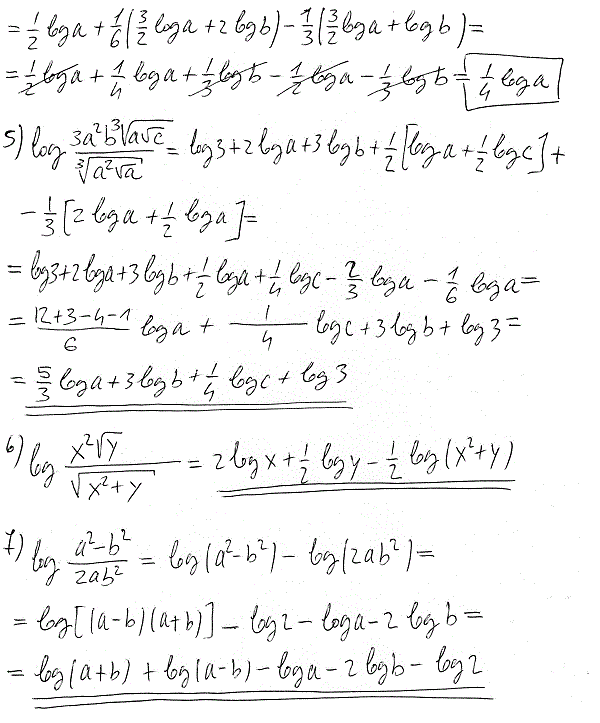 = 1/2 log a + 1/6 (3/2 log a + 2 log b) - 1/3 (3/2 log a + log b) =
= 1/2 log a + 1/4 log a + 1/3 log b - 1/2 log a - 1/3 log b = 1/4 log a
5) log (3a²b³√(a√c)) / ∛(a²√a) = log 3 + 2 log a + 3 log b + 1/2 [log a + 1/2 log c] +
- 1/3 [2 log a + 1/2 log a] =
= log 3 + 2 log a + 3 log b + 1/2 log a + 1/4 log c - 2/3 log a - 1/6 log a =
= (12+3-4-1)/6 log a + 1/4 log c + 3 log b + log 3 =
= 5/3 log a + 3 log b + 1/4 log c + log 3
6) log (x²√y) / √(x²+y) = 2 log x + 1/2 log y - 1/2 log (x²+y)
7) log (a²-b²) / (2ab²) = log (a²-b²) - log (2ab²) =
= log [(a-b)(a+b)] - log 2 - log a - 2 log b =
= log (a+b) + log (a-b) - log a - 2 log b - log 2